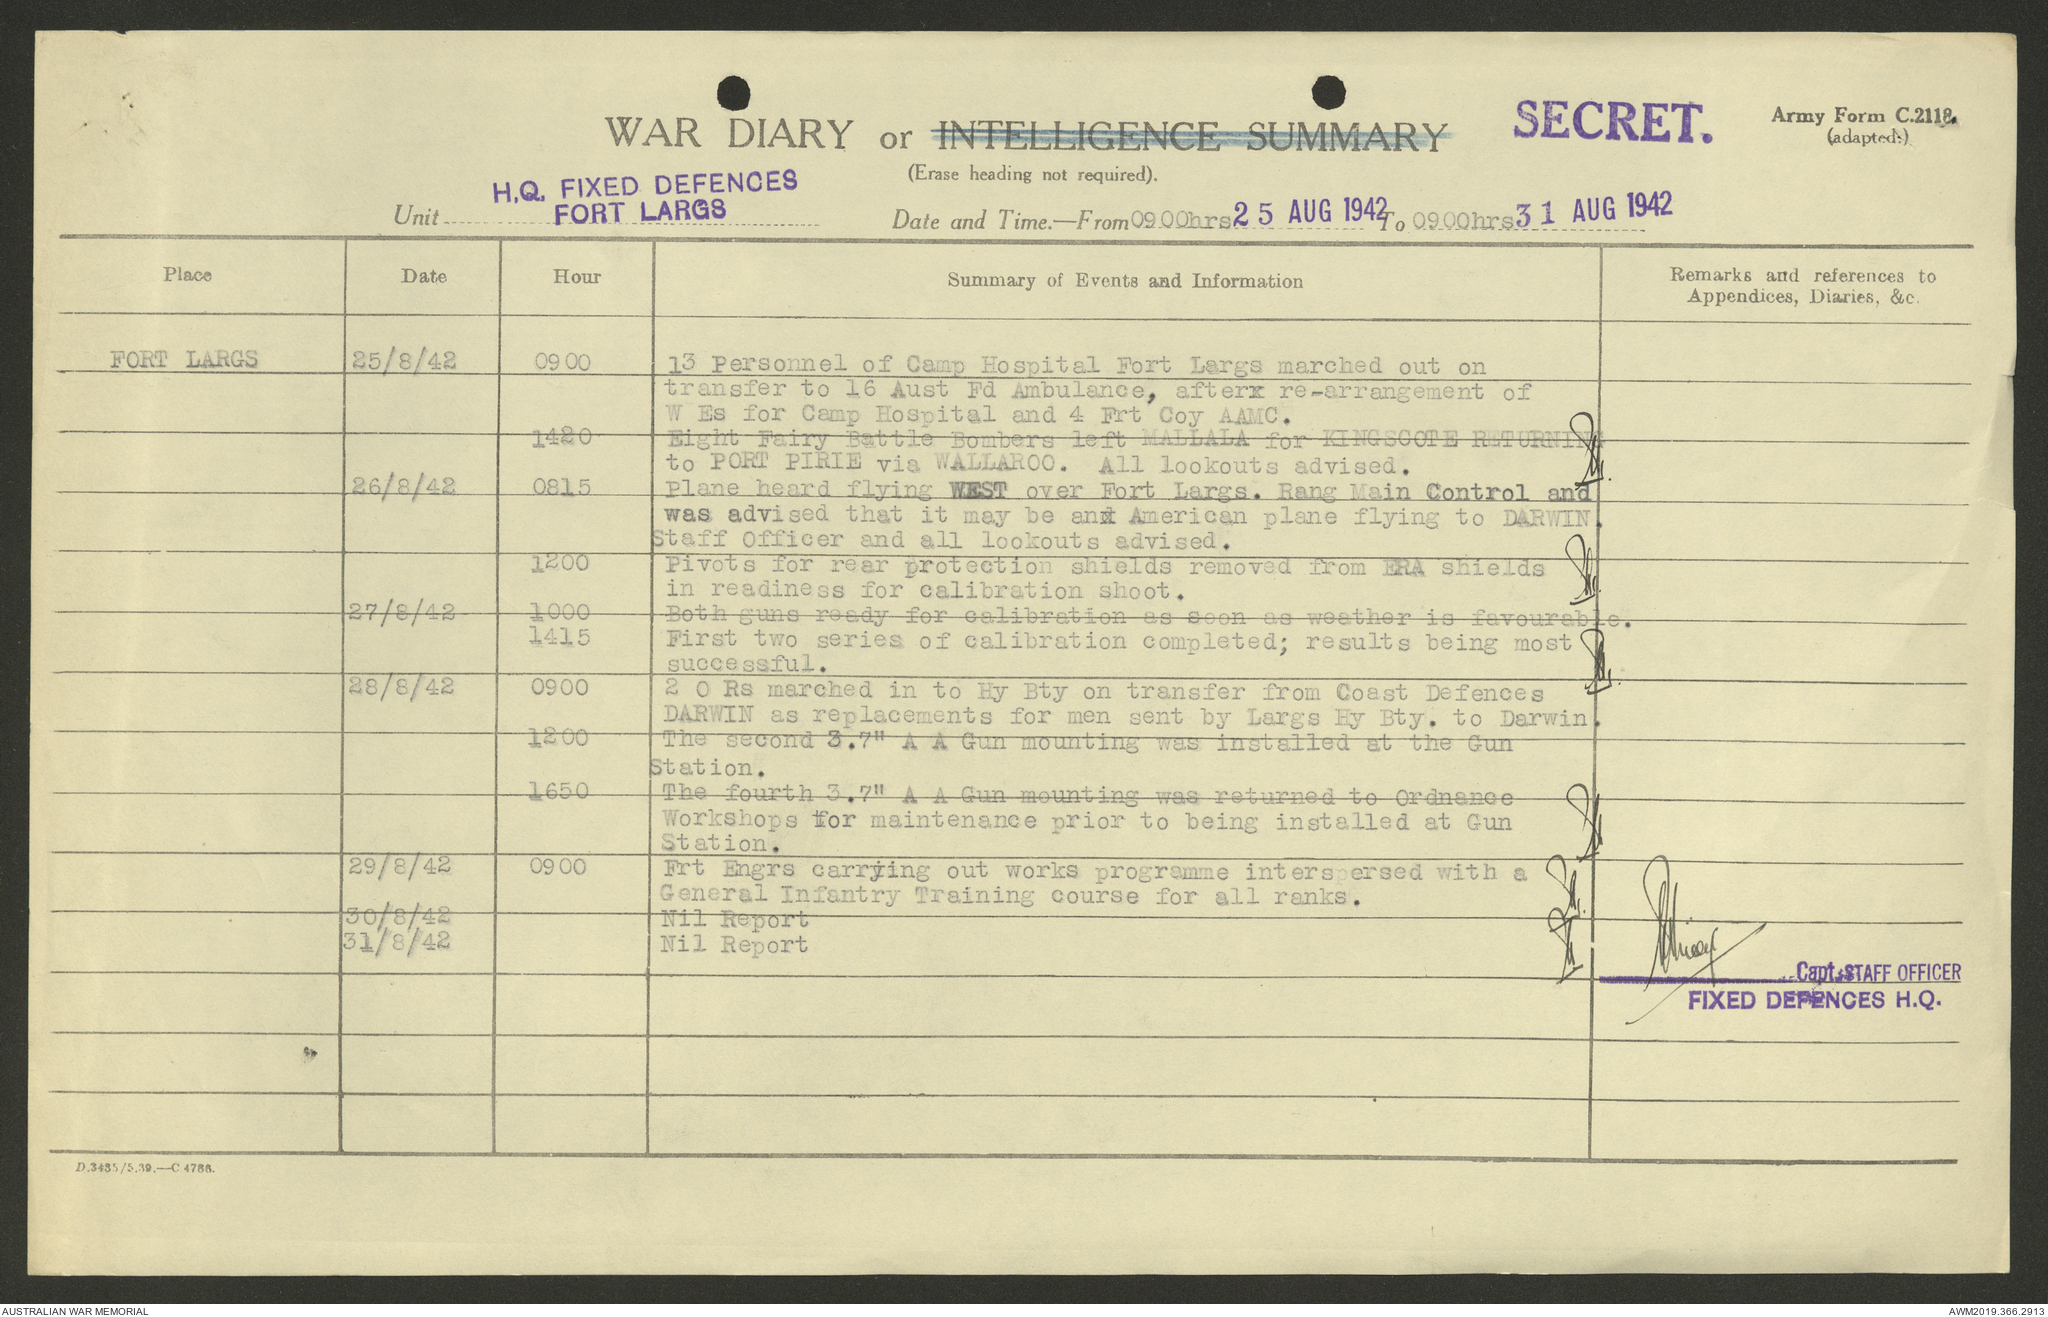 WAR DIARY or INTELLIGENCE SUMMARY
SECRET.
Army Form C.2118.
(adapted.)
(Erase heading not required).
Unit H.Q. FIXED DEFENCES
FORT LARGS
Date and Time.—From 0900hrs 25 AUG 1942 To 0900hrs 31 AUG 1942
Place Date Hour Summary of Events and Information Remarks and references to
Appendices, Diaries, &c.
FORT LARGS 25/8/42 0900 13 Personnel of Camp Hospital Fort Largs marched out on
transfer to 16 Aust Fd Ambulance, afterx re-arrangement of
W Es for Camp Hospital and 4 Frt Coy AAMC.
1420 Eight Fairy Battle Bombers left MALLALA for KINGSCOTE RETURNING
to PORT PIRIE via WALLAROO. All lookouts advised.
26/8/42 0815 Plane heard flying WEST over Fort Largs. Rang Main Control and
was advised that it may be anx American plane flying to DARWIN.
Staff Officer and all lookouts advised.
1200 Pivots for rear protection shields removed from ERA shields
in readiness for calibration shoot.
27/8/42 1000 Both guns ready for calibration as soon as weather is favourable.
1415 First two series of calibration completed; results being most
successful.
28/8/42 0900 2 O Rs marched in to Hy Bty on transfer from Coast Defences
DARWIN as replacements for men sent by Largs Hy Bty. to Darwin.
1200 The second 3.7" A A Gun mounting was installed at the Gun
Station.
1650 The fourth 3.7" A A Gun mounting was returned to Ordnance
Workshops for maintenance prior to being installed at Gun
Station.
29/8/42 0900 Frt Engrs carrying out works programme interspersed with a
General Infantry Training course for all ranks.
30/8/42 Nil Report
31/8/42 Nil Report
Capt. STAFF OFFICER
FIXED DEFENCES H.Q.
D.3435/5.39.—C 4788.
AUSTRALIAN WAR MEMORIAL
AWM2019.366.2913